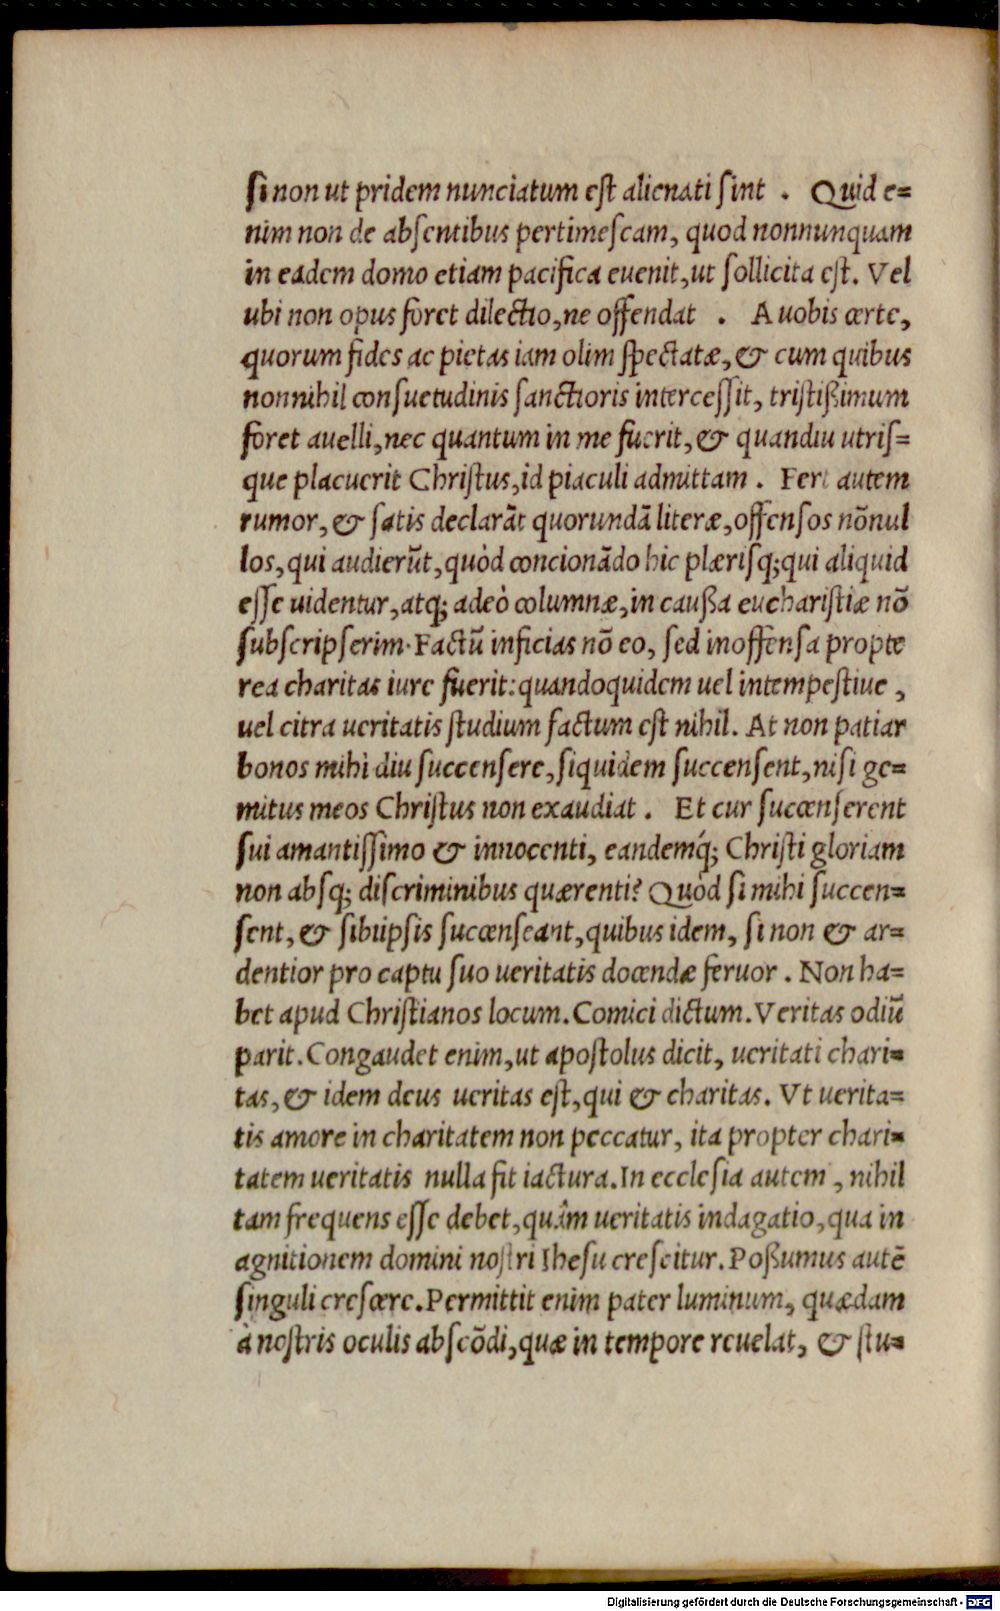 si non ut pridem nunciatum est alienati sint . Quid e=
nim non de absentibus pertimescam, quod nonnunquam
in eadem domo etiam pacifica euenit, ut sollicita est. Vel
ubi non opus foret dilectio, ne offendat . A uobis certe,
quorum fides ac pietas iam olim spectatæ, & cum quibus
nonnihil consuetudinis sanctioris intercessit, tristißimum
foret auelli, nec quantum in me fuerit, & quandiu utris=
que placuerit Christus, id piaculi admittam . Fert autem
rumor, & satis declarãt quorundã literæ, offensos nõnul
los, qui audierũt, quòd concionãdo hic plærisq; qui aliquid
esse uidentur, atq; adeò columnæ, in caußa eucharistiæ nõ
subscripserim. Factũ inficias nõ eo, sed inoffensa propte
rea charitas iure fuerit: quandoquidem uel intempestiue ,
uel citra ueritatis studium factum est nihil. At non patiar
bonos mihi diu succensere, siquidem succensent, nisi ge=
mitus meos Christus non exaudiat . Et cur succenserent
sui amantissimo & innocenti, eandemq́; Christi gloriam
non absq; discriminibus quærenti? Quòd si mihi succen=
sent, & sibiipsis succenseant, quibus idem, si non & ar=
dentior pro captu suo ueritatis docendæ feruor . Non ha=
bet apud Christianos locum. Comici dictum. Veritas odiũ
parit. Congaudet enim, ut apostolus dicit, ueritati chari=
tas, & idem deus ueritas est, qui & charitas. Vt uerita=
tis amore in charitatem non peccatur, ita propter chari=
tatem ueritatis nulla fit iactura. In ecclesia autem , nihil
tam frequens esse debet, quâm ueritatis indagatio, qua in
agnitionem domini nostri Ihesu crescitur. Poßumus autẽ
singuli crescere. Permittit enim pater luminum, quædam
à nostris oculis abscõdi, quæ in tempore reuelat, & stu=
Digitalisierung gefördert durch die Deutsche Forschungsgemeinschaft - DFG